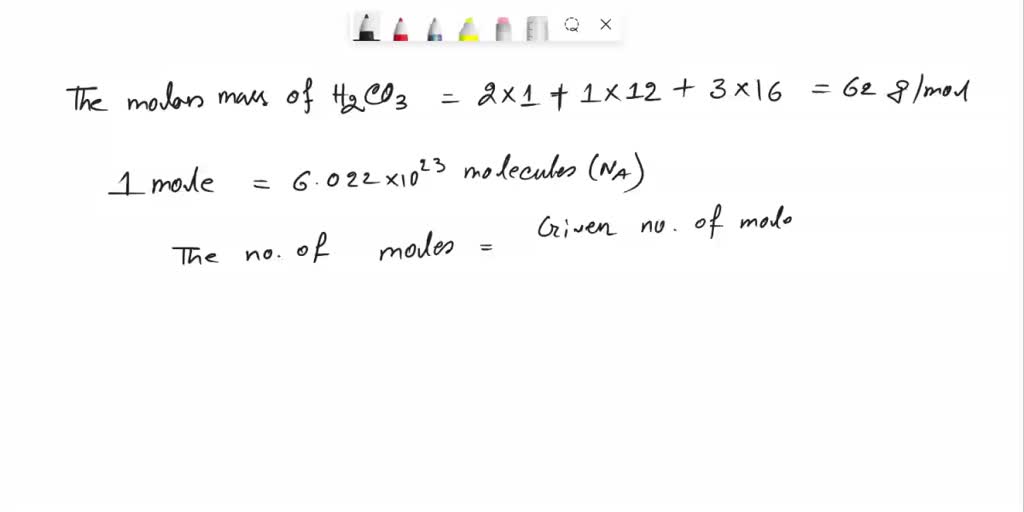 The molar mass of H₂CO₃ = 2×1 + 1×12 + 3×16 = 62 g/mol
1 mole = 6.022×10²³ molecules (NA)
Given no. of mole
The no. of moles =